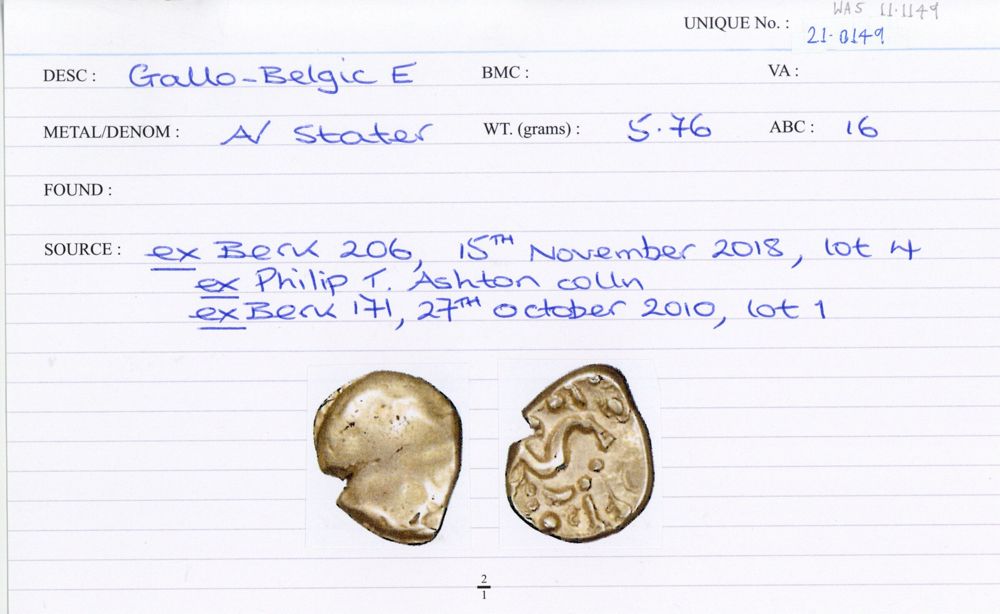 WAS 11·1149
UNIQUE No. : 21·0149
DESC : Gallo-Belgic E BMC : VA :
METAL/DENOM : A/ Stater WT. (grams) : 5·76 ABC : 16
FOUND :
SOURCE : ex Berk 206, 15TH November 2018, lot 4
ex Philip T. Ashton colln
ex Berk 171, 27TH October 2010, lot 1
2
1